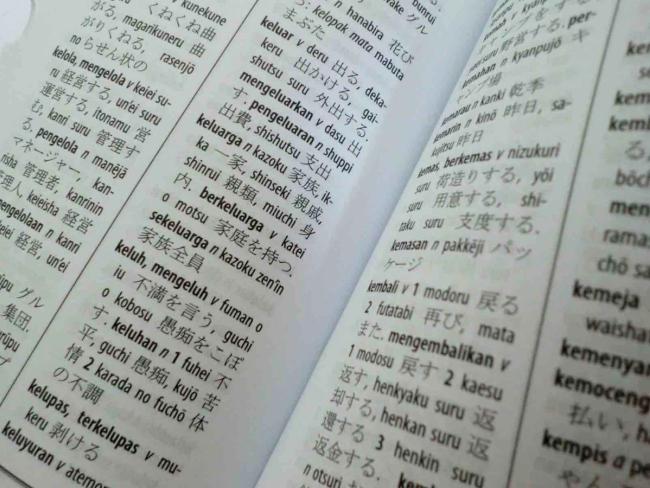 v kunekune
がる, magarikuneru くねくね曲
がりくねる, rasenjō
no らせん状の
kelola, mengelola v keiei su-
ru 経営する, un'ei suru
運営する, itonamu 営
む, kanri suru 管理する
pengelola n manējā
マネージャー, kan-
risha 管理者, kanrinin
管理人, keieisha 経営
pengelolaan n kanri
経営, un'ei
グル
集団,
keluar v deru 出る, deka-
keru 出かける, gai-
shutsu suru 外出する.
mengeluarkan v dasu 出
す. pengeluaran n shuppi
出費, shishutsu 支出
keluarga n kazoku 家族, ik-
ka 一家, shinseki 親戚,
shinrui 親類, miuchi 身
内, berkeluarga v katei
o motsu 家庭を持つ.
sekeluarga n kazoku zen'in
家族全員
keluh, mengeluh v fuman o
iu 不満を言う, guchi
o kobosu 愚痴をこぼ
す. keluhan n 1 fuhei 不
平, guchi 愚痴, kujō 苦
情 2 karada no fuchō 体
の不調
kelupas, terkelupas v mu-
keru 剥ける
keluyuran v atemo
bunrui
n hanabira 花び
kelopak mata mabuta
まぶた
suru 野営する. per-
kemahan n kyanpujō キ
ャンプ場
kemarau n kanki 乾季
kemarin n kinō 昨日, sa-
kujitsu 昨日
kemas, berkemas v nizukuri
suru 荷造りする, yōi
suru 用意する, shi-
taku suru 支度する.
kemasan n pakkēji パッ
ケージ
kembali v 1 modoru 戻る
2 futatabi 再び, mata
また. mengembalikan v
1 modosu 戻す 2 kaesu
返す, henkyaku suru 返
却する, henkan suru 返
還する 3 henkin suru
返金する.
n otsuri
kem
kemb
る,
böch
men
ramas
chō sa
kemeja
waisha
kemenyan
kemoceng
払い, ha
kempis a pe